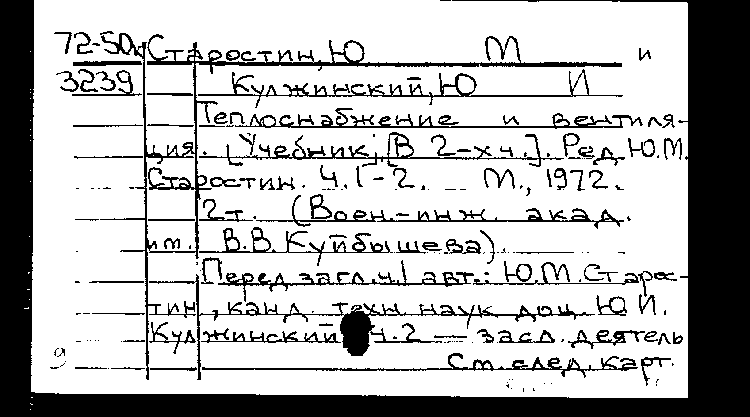 72-50к Старостин, Ю М и
3239 Кулжинский, Ю И
Теплоснабжение и вентиля-
ция. [Учебник]. [В 2-х ч.]. Ред. Ю.М.
Старостин. Ч. 1-2. М., 1972.
2 т. (Воен.-инж. акад.
им. В.В. Куйбышева).
Перед загл. ч. 1 авт.: Ю.М. Старос-
тин, канд. техн наук доц. Ю.И.
Кулжинский ч. 2 — засл. деятель
9 См. след. карт.